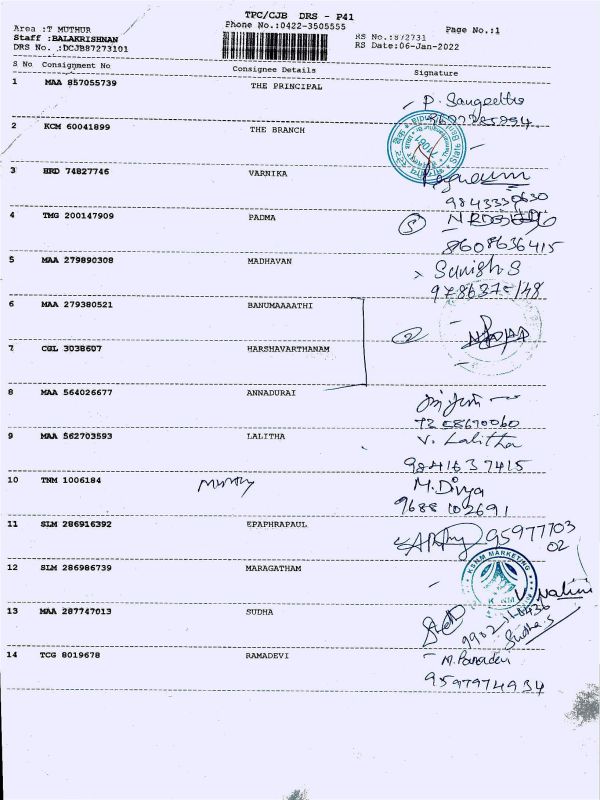 TPC/CJB DRS - P41
Phone No.:0422-3505555
Area :T MUTHUR
Staff :BALAKRISHNAN
DRS No. .:DCJB87273101
RS No.:872731
RS Date:06-Jan-2022
Page No.:1
S No Consignment No Consignee Details Signature
1 MAA 857055739 THE PRINCIPAL
P. Sangeetha
2 KCM 60041899 THE BRANCH
3 HRD 74827746 VARNIKA
9843330630
4 TMG 200147909 PADMA
8608636415
5 MAA 279890308 MADHAVAN
Sunish S
6 MAA 279380521 BANUMAAAATHI
7 CGL 3038607 HARSHAVARTHANAM
8 MAA 564026677 ANNADURAI
9 MAA 562703593 LALITHA
V. Lalitha
9841637415
10 TNM 1006184
M. Divya
9688102691
11 SLM 286916392 EPAPHRAPAUL
95977703
02
12 SLM 286986739 MARAGATHAM
KSNM MARKETING
KSNM
V. Nalini
13 MAA 287747013 SUDHA
Sudha S
14 TCG 8019678 RAMADEVI
9597974934